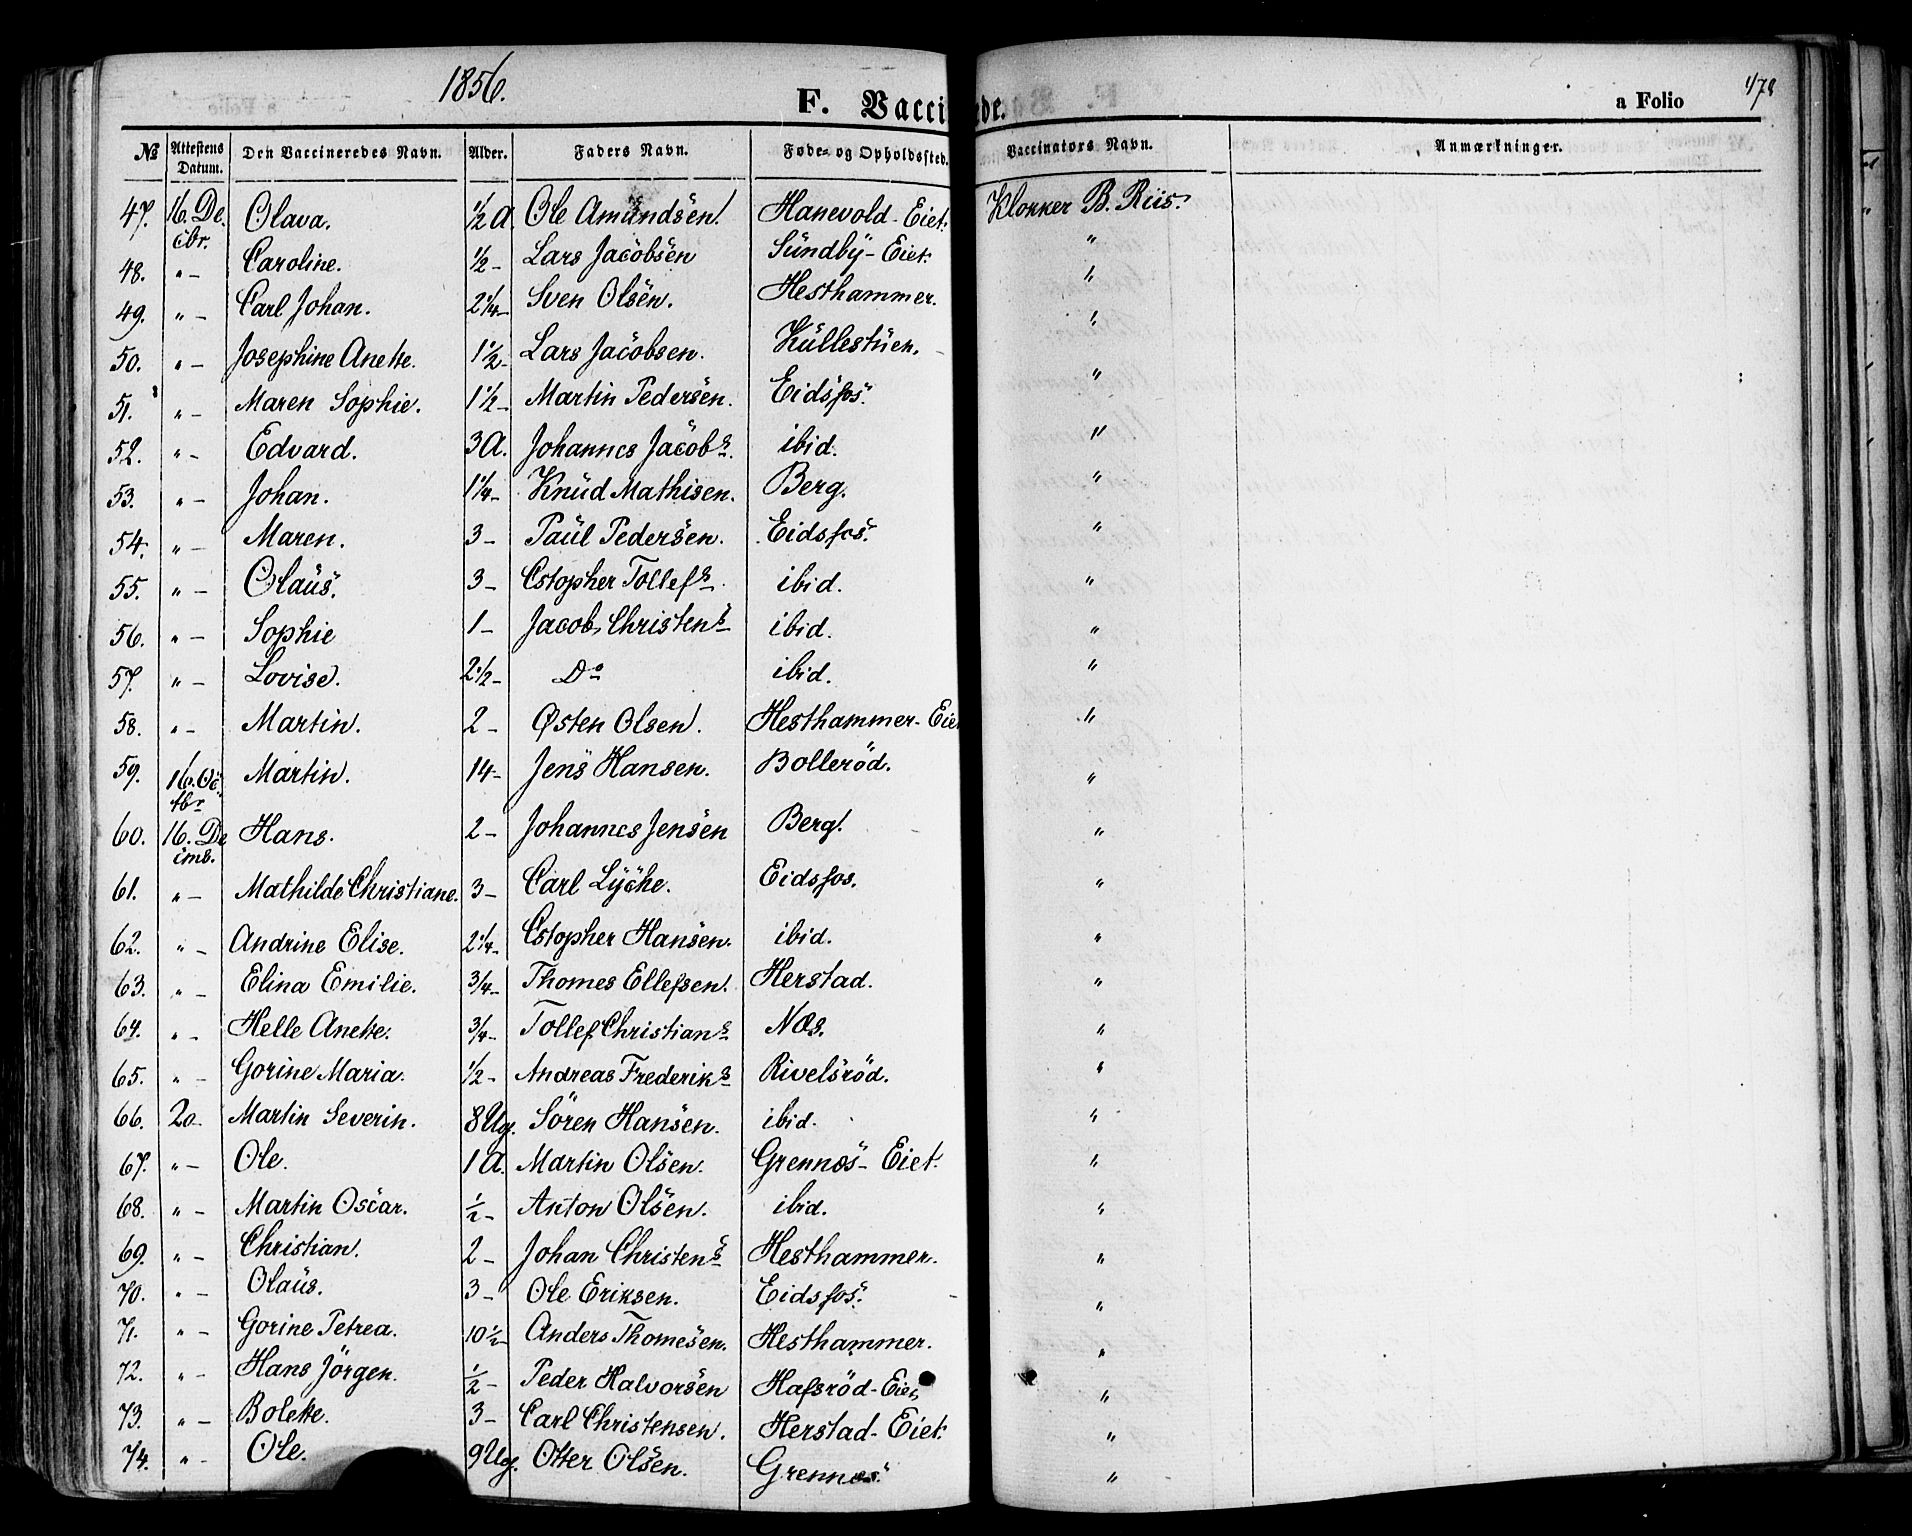 1856.
F. Vaccinerede.
a Folio 478
№ Attestens Datum. Den Vaccineredes Navn. Alder. Faders Navn. Føde- og Opholdssted. Vaccinators Navn. Anmærkninger.
47. 16. Decbr. Olava. ½ A. Ole Amundsen. Hanevold-Eiet. Klokker B. Riis.
48. " – Caroline. ½ – Lars Jacobsen Sundby-Eiet. "
49. " – Carl Johan. 2¼ – Sven Olsen. Hesthammer. "
50. " – Josephine Anette. 1½ – Lars Jacobsen. Kullestuen. "
51. " – Maren Sophie. 1½ – Martin Pedersen. Eidsfos. "
52. " – Edvard. 3 A. Johannes Jacobs. ibid. "
53. " – Johan. 1¼ – Knud Mathisen. Berg. "
54. " – Maren. 3 – Paul Pedersen. Eidsfos. "
55. " – Olaus. 3 – Cstopher Tollefs. ibid. "
56. " – Sophie 1 – Jacob Christens ibid. "
57. " – Lovise. 2½ – Do ibid. "
58. " – Martin. 2 – Østen Olsen. Hesthammer-Eiet "
59. 16. Octbr Martin. 14 – Jens Hansen. Bolleröd. "
60. 16. Decmb. Hans. 2 – Johannes Jensen Berg. "
61. " – Mathilde Christiane. 3 – Carl Lyche. Eidsfos. "
62. " – Andrine Elise. 2¼ – Cstopher Hansen. ibid. "
63. " – Elina Emilie. ¾ – Thomes Ellefsen. Herstad. "
64. " – Helle Anette. ¾ – Tollef Christians Næs. "
65. " – Gorine Maria. ½ – Andreas Frederiks Rivelsröd. "
66. 20 – Martin Severin. 8 Ug. Sören Hansen. ibid. "
67. " – Ole. 1 A. Martin Olsen. Grennes-Eiet. "
68. " – Martin Oscar. ½ – Anton Olsen. ibid. "
69. " – Christian. 2 – Johan Christens Hesthammer. "
70. " – Olaus. 3 – Ole Eriksen. Eidsfos. "
71. " – Gorine Petrea. 10½ – Anders Thomesen. Hesthammer. "
72. " – Hans Jörgen. ½ – Peder Halvorsen Hafsröd-Eiet "
73. " – Bolette. 3 – Carl Christensen. Herstad-Eiet. "
74. " – Ole. 9 Ug. Otter Olsen. Grennes. "